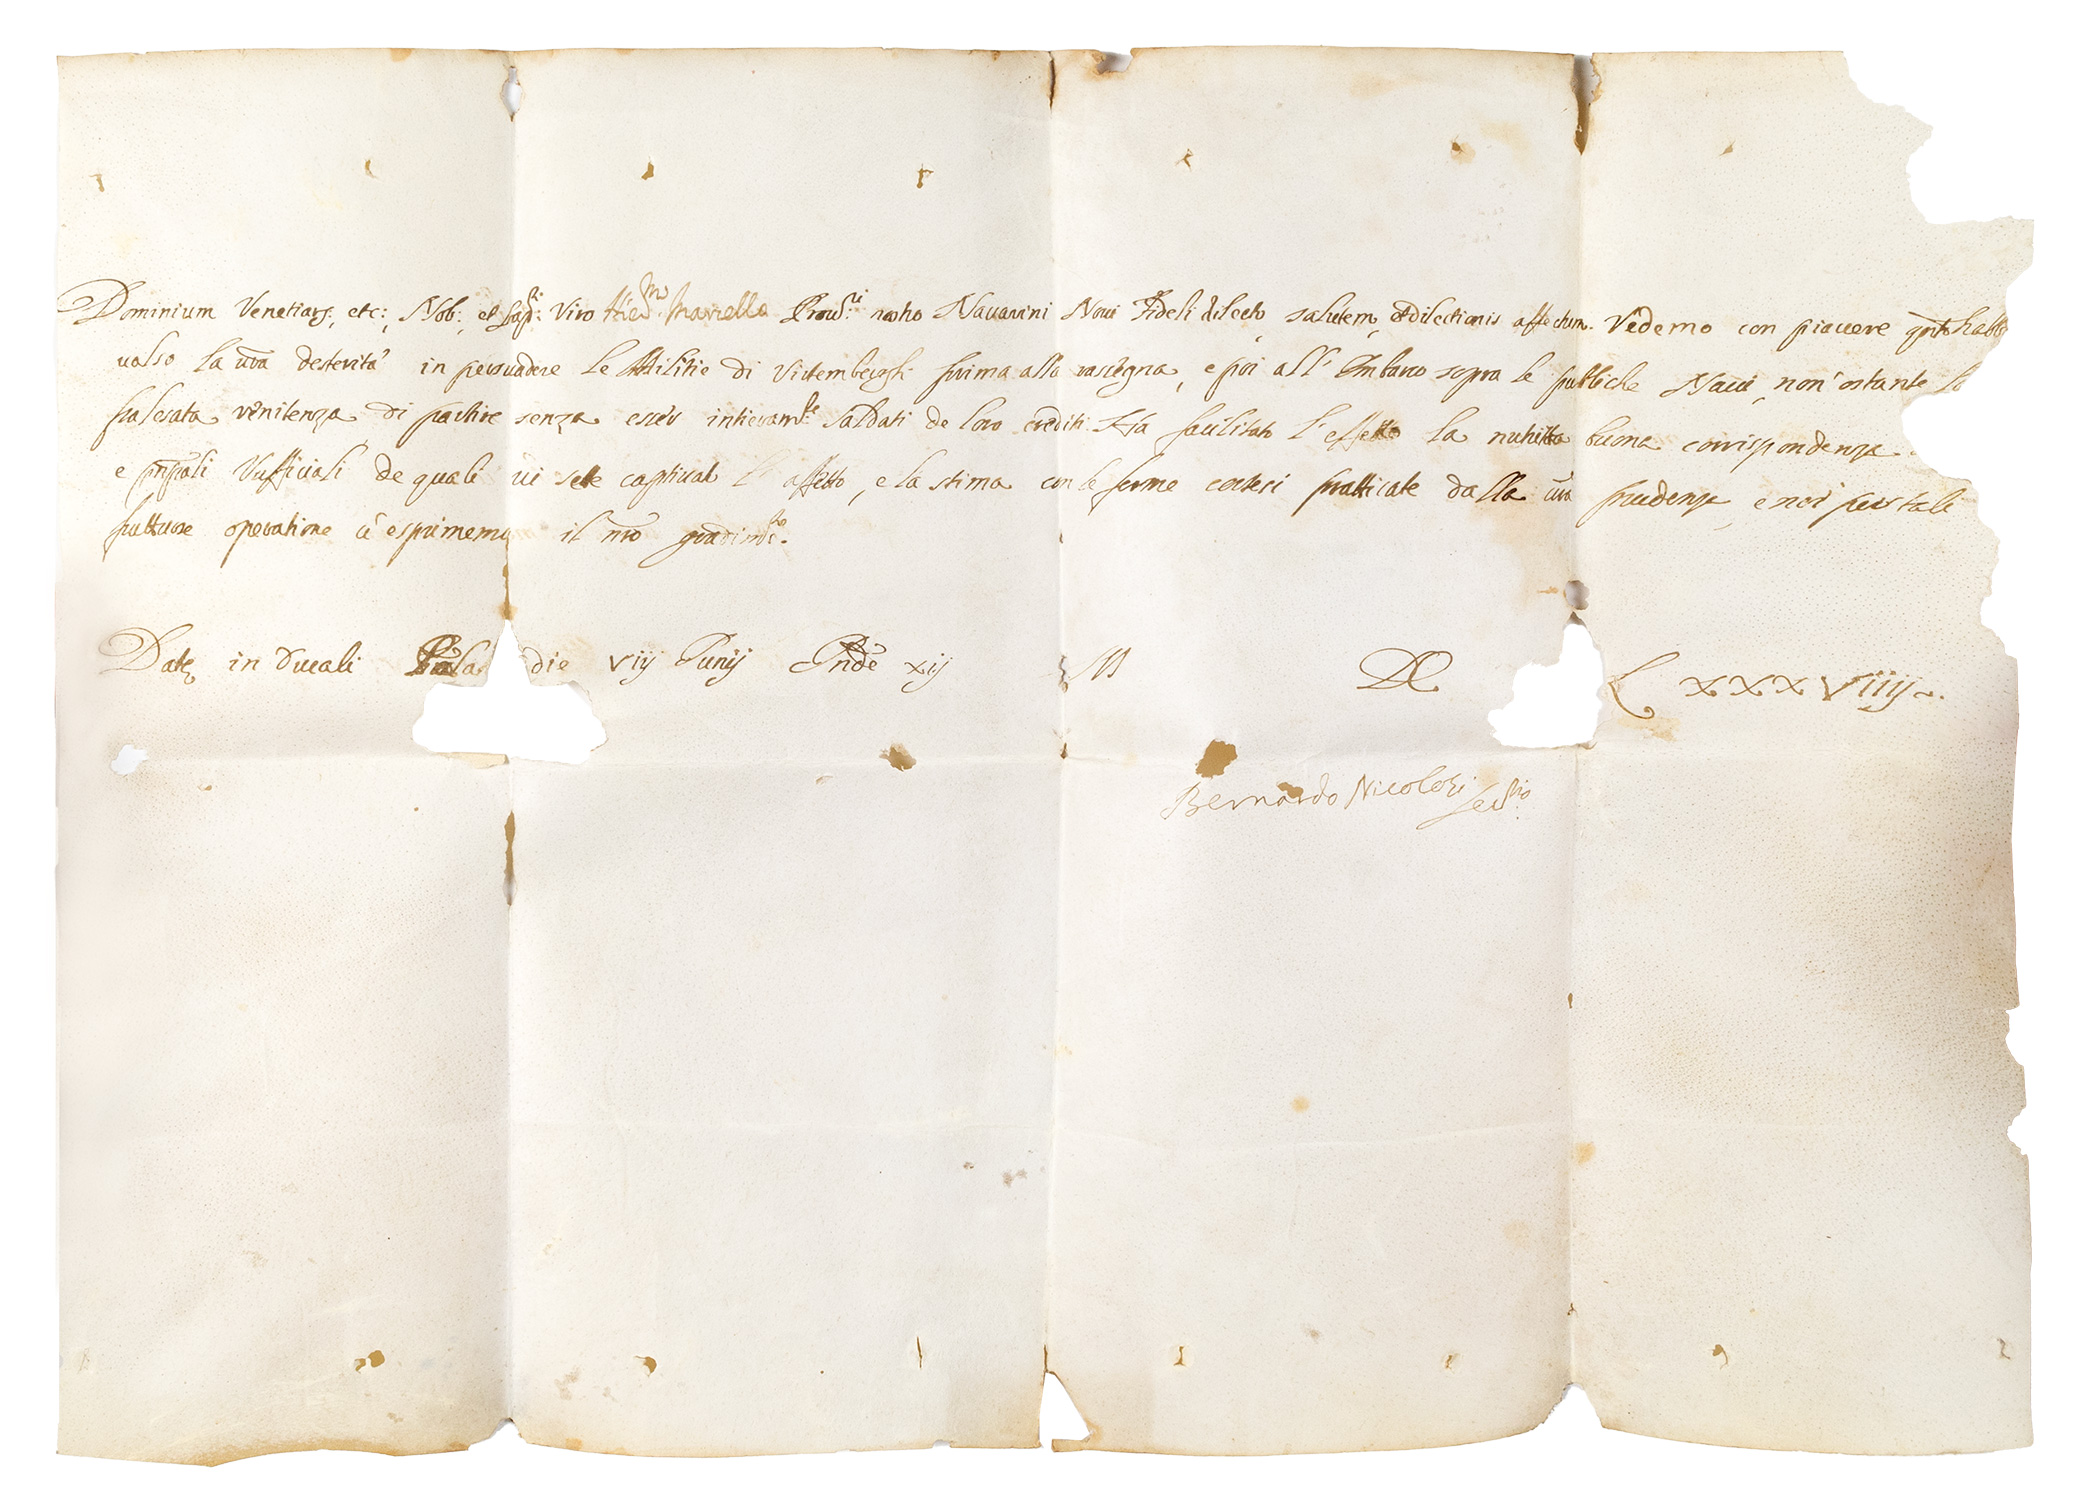 Dominium Venetiarz; etc:, Nob:, et Sapti: Viro Hiermo Marcello Prouri: nostro Nauarini Noui Fideli dilecto salutem, et dilectionis affectum. Vedemo con piacere qnto habbi
ualso la vra desterità in persuadere le Militie di Virtembergh prima alla rassegna, e poi all' Imbarco sopra le publiche Naui, non' ostante la
palesata renitenza di partire senza esser intieramte saldati de loro crediti. Ha facilitato l' effetto la nutrita buona corrispondenza
e prnpali Vufficiali de quali ui sete captivato l' affetto, e la stima con le forme cortesi pratticate dalla vra prudenza, e noi per tale
fruttuosa operatione ue esprimemo il nro gradimto.
Datę in Ducali Pala die Vij Iunij Inde xij M DC L xxxViiij.
Bernardo Nicolosi Secrio